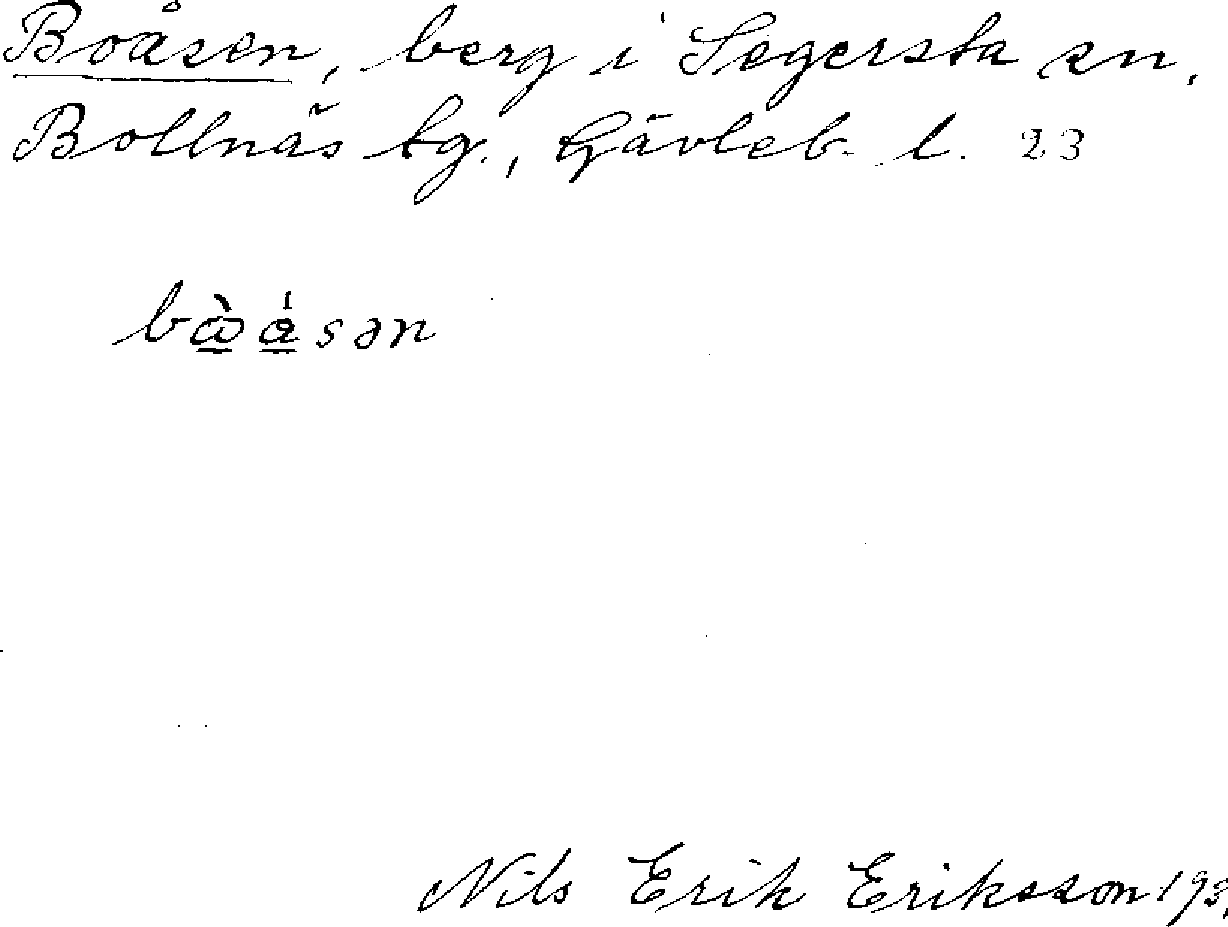 Boåsen, berg i Segersta sn,
Bollnäs tg., Gävleb. l. 23
Nils Erik Eriksson 193